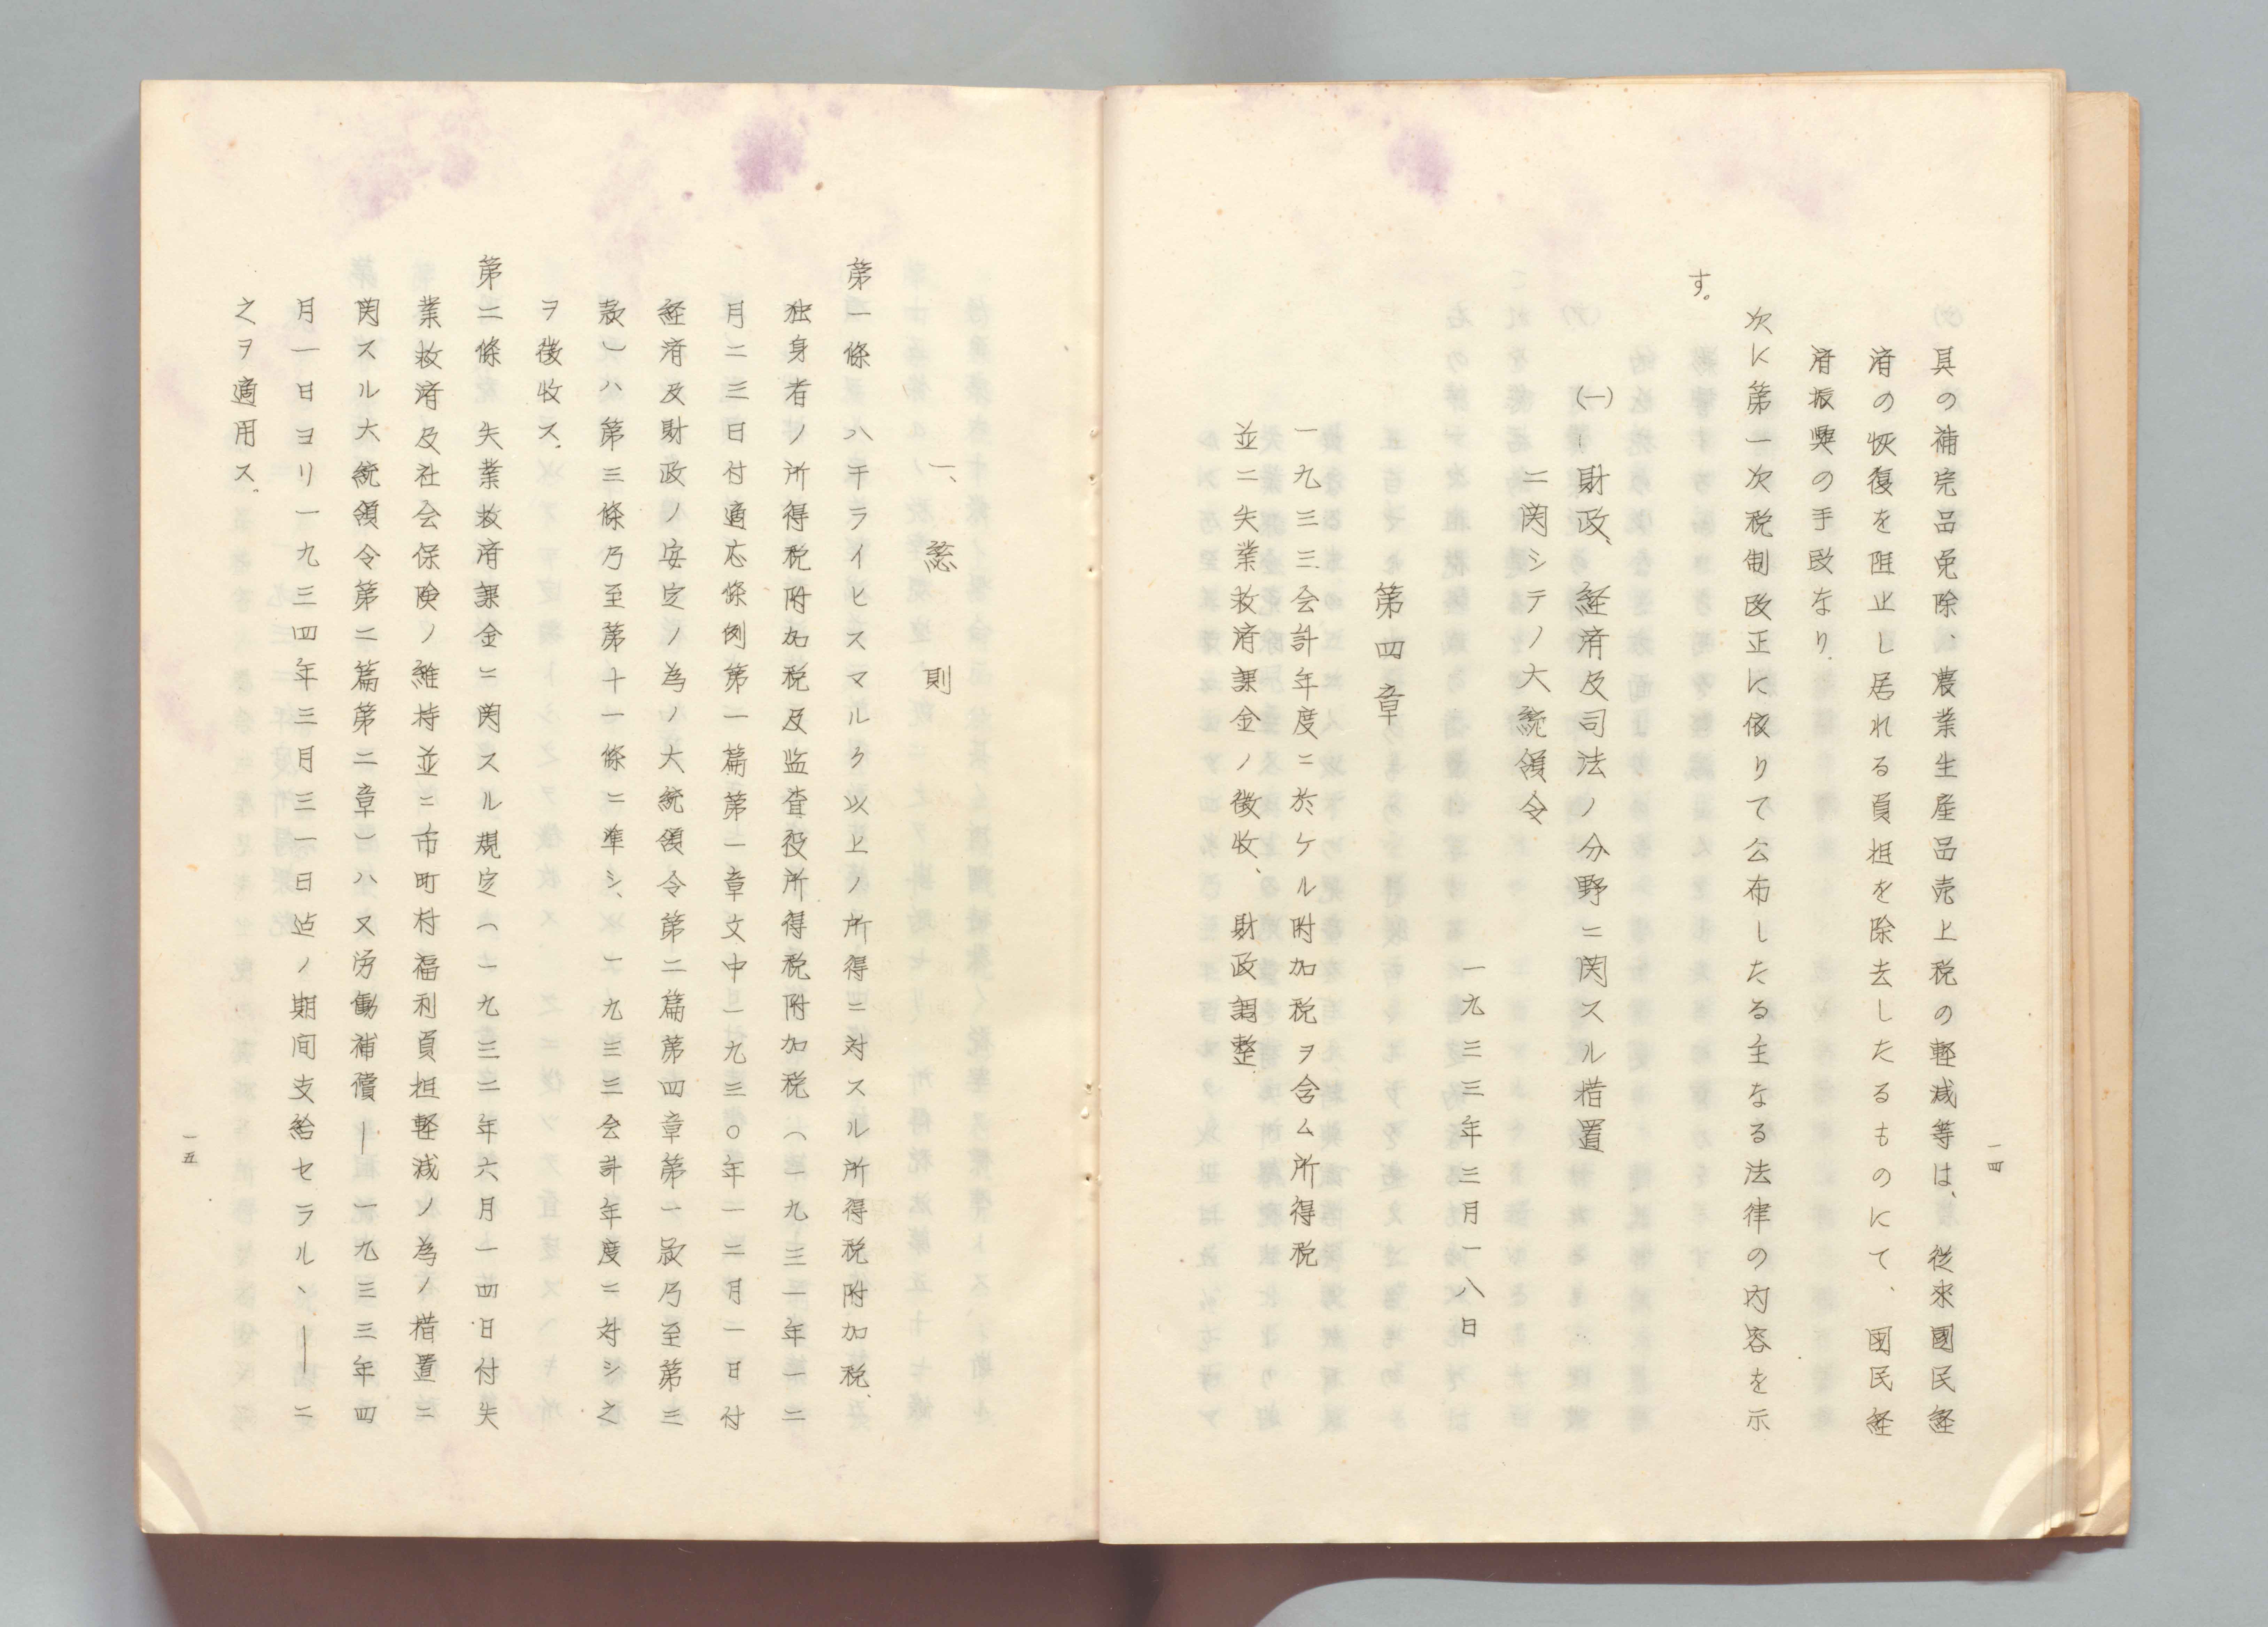 一四
具の補完品免除、農業生産品売上税の軽減等は、従來國民経
済の恢復を阻止し居れる負担を除去したるものにて、国民経
済振興の手段なり.
次に第一次税制改正に依りて公布したる主なる法律の内容を示
す。
(一) 財政、経済及司法ノ分野ニ関スル措置
ニ関シテノ大統領令
一九三三年三月一八日
第四章
一九三三会計年度ニ於ケル附加税ヲ含ム所得税
並ニ失業救済課金ノ徴收、財政調整
一、総則
第一條 八千ライヒスマルク以上ノ所得ニ対スル所得税附加税、
独身者ノ所得税附加税及監査役所得税附加税(一九三二年一二
月二三日付適応條例第一篇第一章文中一九三〇年一二月一日付
経済及財政ノ安定ノ為ノ大統領令第二篇第四章第一款乃至第三
款)ハ第三條乃至第十一條ニ準シ、一九三三会計年度ニ対シ之
ヲ徴收ス.
第二條 失業救済課金ニ関スル規定(一九三二年六月一四日付失
業救済及社会保険ノ維持並ニ市町村福利負担軽減ノ為ノ措置ニ
関スル大統領令第二篇第二章)ハ又労働補償―一九三三年四
月一日ヨリ一九三四年三月三一日迠ノ期間支給セラル、―ニ
之ヲ適用ス.
一五